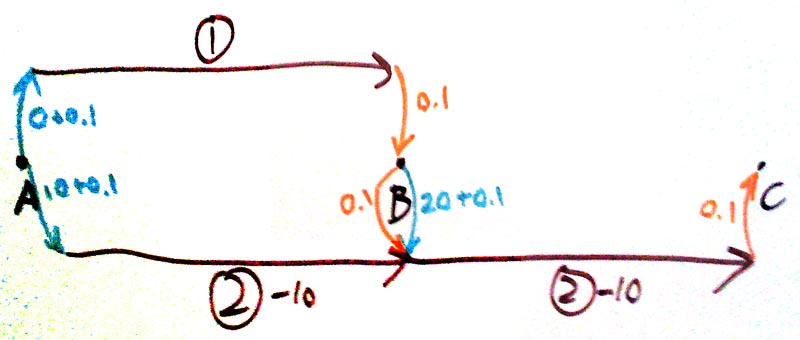 ①
0+0.1
0.1
A
10+0.1
0.1
B
20+0.1
0.1
C
②-10
②-10